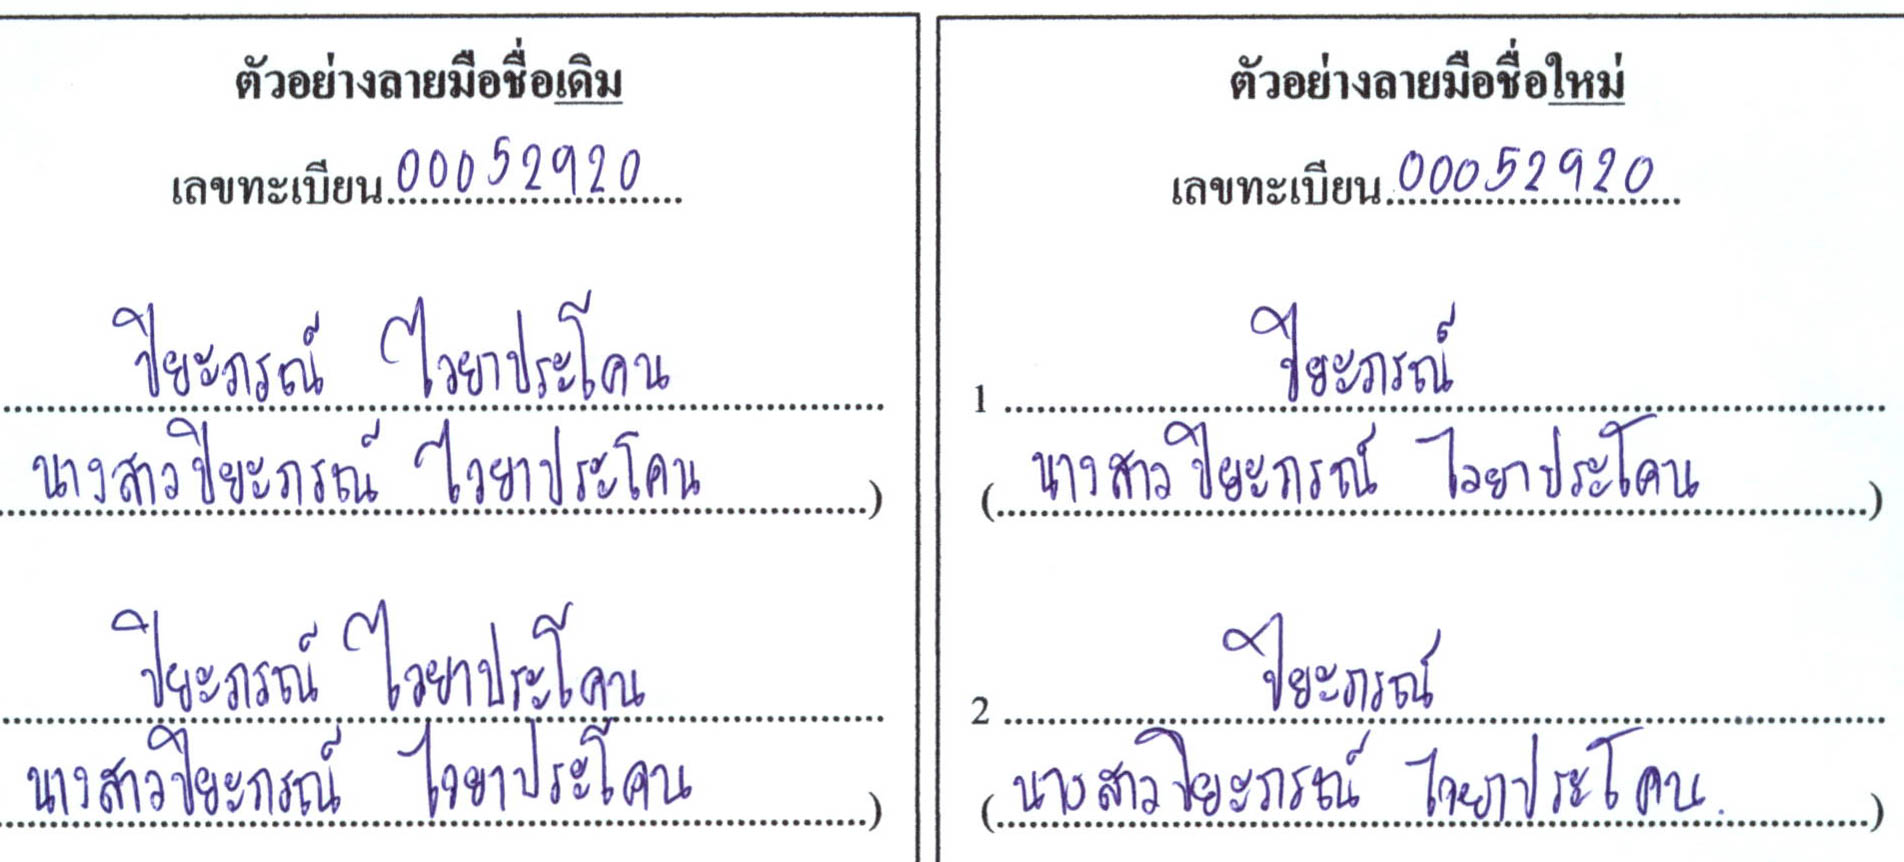 ตัวอย่างลายมือชื่อเดิม
เลขทะเบียน 00052920
ปิยะภรณ์ ไวยาประโคน
นางสาวปิยะภรณ์ ไวยาประโคน )
ปิยะภรณ์ ไวยาประโคน
นางสาวปิยะภรณ์ ไวยาประโคน )
ตัวอย่างลายมือชื่อใหม่
เลขทะเบียน 00052920
1 ปิยะภรณ์
( นางสาวปิยะภรณ์ ไวยาประโคน )
2 ปิยะภรณ์
( นางสาวปิยะภรณ์ ไวยาประโคน. )